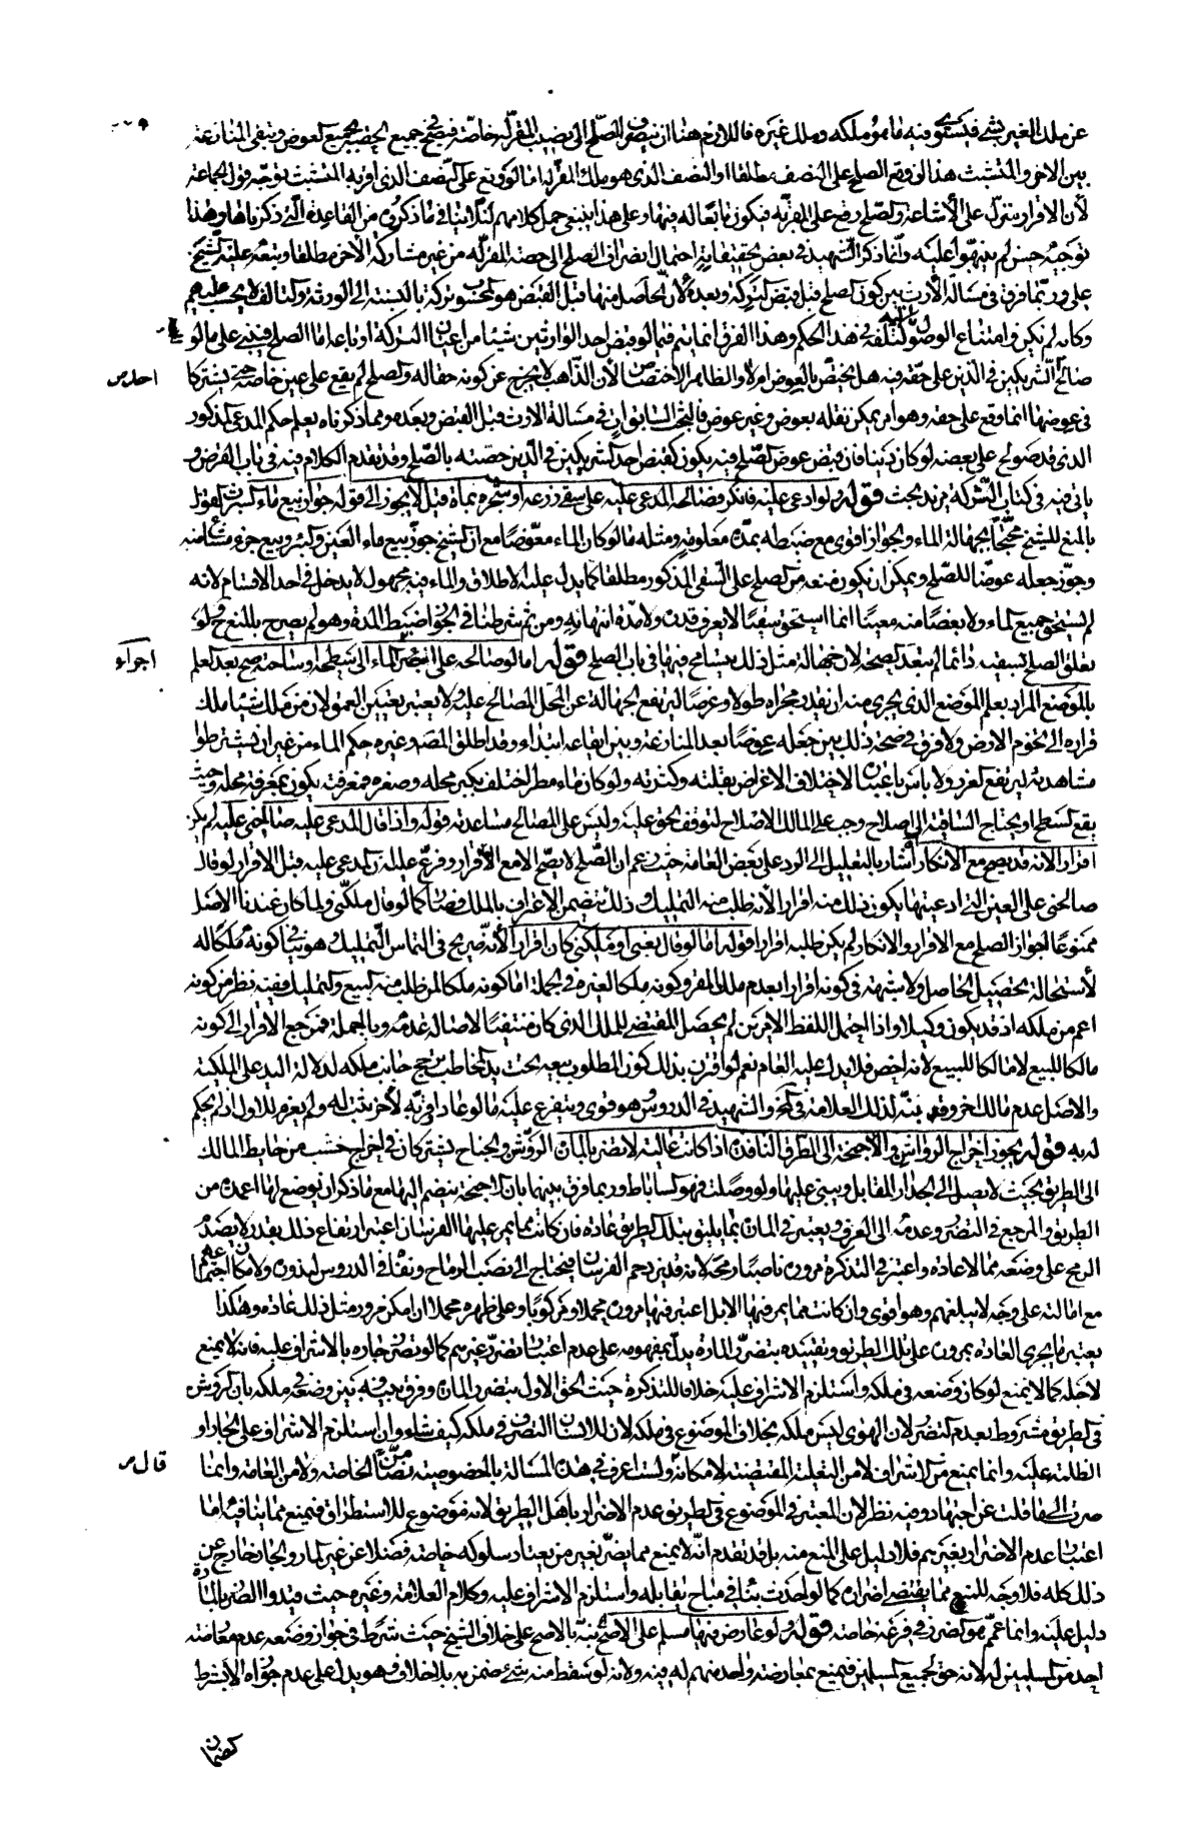 عن ملك الغير بشئ فيستحق فيه ما هو ملكه وملك غيره فاللازم هنا ان ينصرف الصلح الى نصيب المقر له خاصة فيصح في جميع الحصة بجميع العوض وتبقى المنازعة
بين الاخر والمتشبث هذا لو وقع الصلح على النصف مطلقا او النصف الذى هو ملك المقر له اما لو وقع على النصف الذى اقر به المتشبث توجه قول الجماعة
لان الاقرار منزل على الاشاعة والصلح وقع على المقر به فيكون تابعا له فيها وعلى هذا ينبغى حمل كلامهم لئلا ينافى ما ذكروه من القاعدة التى ذكرناها وهذا
توجيه حسن لم ينبهوا عليه وانما ذكر الشهيد في بعض تحقيقاته احتمال انصراف الصلح الى حصة المقر له من غير مشاركة الاخر مطلقا وتبعه عليه الشيخ
على وربما فرق في مسالة الارث بين كون الصلح قبل قبض التركة وبعده لان الحاصل منها قبل القبض هو المحسوب تركة بالنسبة الى الورثة والتالف لا يحسب عليهم
وكانه لم يكن وامتناع الوصول اليه كتلفه في هذا الحكم وهذا الفرق انما يتم فيما لو قبض احد الوارثين شيئا من اعيان التركة او باعه اما الصلح فيبنى على ما لو
صالح احد الشريكين في الدين على حقه فيه هل يختص بالعوض ام لا والظاهر الاختصاص لان الذاهب لا يخرج عن كونه حقا له والصلح لم يقع على عين خاصة حتى يشتركا
في عوضها انما وقع على حقه وهو امر يمكن نقله بعوض وغير عوض فالبحث السابق ات في مسالة الارث قبل القبض وبعده ومما ذكرناه يعلم حكم المدعى المذكور
الذى قد صولح على بعضه لو كان دينا فان قبض عوض الصلح فيه يكون كقبض احد الشريكين في الدين حصته بالصلح وقد تقدم الكلام فيه في باب القرض و
ياتى فيه في كتاب الشركة مزيد بحث قوله ولو ادعى عليه فانكر فصالحه المدعى عليه على سقى زرعه او شجره بمائه قيل لا يجوز الى قوله جواز بيع ماء الشرب القول
بالمنع للشيخ محتجا بجهالة الماء والجواز اقوى مع ضبطه بمدة معلومة ومثله ما لو كان الماء معوضا مع ان الشيخ جوز بيع ماء العين والبئر وبيع جزء مشاع منه
وجوز جعله عوضا للصلح ويمكن ان يكون منعه من الصلح على السقى المذكور مطلقا كما يدل عليه الاطلاق والماء فيه مجهول لا يدخل في احد الاقسام لانه
لم يستحق جميع الماء ولا بعضا منه معينا انما استحق سقيا لا يعرف قدره ولا مدة انتهائه ومن ثم شرطنا في الجواز ضبط المدة وهو لم يصرح بالمنع ح لو
تعلق الصلح بسقيه دائما لم يبعد الصحة لان جهالة مثل ذلك يتسامح فيها في باب الصلح قوله اما لو صالحه على اجراء الماء الى سطحه او ساحته صح بعد العلم
بالموضع المراد بعلم الموضع الذى يجرى منه ان يقدر مجراه طولا وعرضا لترتفع الجهالة عن المحل المصالح عليه ولا يعتبر تعيين العمق لان من ملك شيئا ملك
قراره الى تخوم الارض ولا فرق في صحة ذلك بين جعله عوضا بعد المنازعة وبين ايقاعه ابتداء وقد اطلق المصنف وغيره حكم الماء من غير ان يشترطوا
مشاهدته ليرتفع الغرر ولا باس باعتباره لاختلاف الاغراض بقلته وكثرته ولو كان ماء مطر اختلف بكبر محله وصغره فمعرفته يكون بمعرفة محله وحيث
يقع السطح او يحتاج الساقية الى اصلاح وجب على المالك الاصلاح لتوقف الحق عليه وليس على المصالح مساعدته قوله واذا قال المدعى عليه صالحنى عليه لم يكن
اقرارا لانه قد يصح مع الانكار اشار بالتعليل الى الرد على بعض العامة حيث زعم ان الصلح لا يصح الا مع الاقرار وفرع عليه ان المدعى عليه قبل الاقرار لو قال
صالحنى على العين التى ادعيتها يكون ذلك منه اقرارا لانه طلب منه التمليك وذلك يتضمن الاعتراف بالملك فصار كما لو قال ملكنى ولما كان عندنا الاصل
ممنوعا لجواز الصلح مع الاقرار والانكار لم يكن طلبه اقرارا قوله اما لو قال بعنى او ملكنى كان اقرارا لانه صريح في التماس التمليك هو ينافى كونه ملكا له
لاستحالة تحصيل الحاصل ولا شبهة في كونه اقرارا بعدم ملك المقر وكونه ملكا لغيره في الجملة اما كونه ملكا لمن طلب منه البيع والتمليك ففيه نظر من كونه
اعم من ملكه اذ قد يكون وكيلا واذا احتمل اللفظ الامرين لم يحصل المقتضى للملك الذى كان منتفيا لاصالة عدمه وبالجملة فمرجع الاقرار الى كونه
مالكا للبيع لا مالكا للمبيع لانه اخص فلا يدل عليه العام نعم لو اقترن بذلك كون المطلوب بيعه تحت يد المخاطب ترجح جانب ملكه لدلالة اليد على الملكية
والاصل عدم مالك اخر وقد نبه لذلك العلامة في التحرير والشهيد في الدروس وهو قوى ويتفرع عليه ما لو عاد اقر به لاخر يثبت له ولم يغرم للاول اذ لم يحكم
له به قوله يجوز اخراج الرواشن والاجنحة الى الطرق النافذة اذا كانت عالية لا تضر بالمارة الروشن والجناح يشتركان في اخراج خشب من حايط المالك
الى الطريق بحيث لا يصل الى الجدار المقابل ويبنى عليها ولو وصلت فهو الساباط وربما فرق بينهما بان الاجنحة ينضم اليها مع ما ذكر ان توضع لها اعمدة من
الطريق والمرجع في التضرر وعدمه الى العرف ويعتبر في المارة بما يليق بتلك الطريق عادة فان كانت مما يمر عليها الفرسان اعتبر ارتفاع ذلك بقدر لا يصدم
الرمح على وضعه مما لا عادة واعتبر في التذكرة مروره ناصبا رمحه لانه قد يزدحم الفرسان فيحتاج الى نصب الرماح ونفاه في الدروس لندوره ولامكان اجتماعهم
مع امالته على وجه لا يبلغهم وهو اقوى وان كانت مما يمر فيها الابل اعتبر فيها مروره محملا ومركوبا وعلى ظهره محملا ان امكن مرور مثل ذلك عادة وهكذا
يعتبر ما يجرى العادة بمروره على تلك الطريق وتقييده بتضرر المارة يدل بمفهومه على عدم اعتبار تضرر غيرهم كما لو تضرر جاره بالاشراف عليه فانه لا يمنع
لاجله كما لا يمنع لو كان وضعه في ملكه واستلزم الاشراف عليه خلافا للتذكرة حيث الحق الاول بتضرر المارة وفرق بينه وبين وضعه في ملكه بان الروشن
في الطريق مشروط بعدم التضرر لان الهواء ليس ملكه بخلاف الموضوع في ملكه لان للانسان التصرف في ملكه كيف شاء وان استلزم الاشراف على الجار او
الظلمة عليه وانما يمنع من الاشراف لا من التعلية المقتضية لامكانه قال ولست اعرف في هذه المسالة بالخصوصية نصا من الخاصة ولا من العامة وانما
صرت الى ما قلت عن اجتهاد وفيه نظر لان المعتبر في الموضوع في الطريق عدم الاضرار باهل الطريق لانه موضوع للاستطراق فيمنع مما ينافيه اما
اعتبار عدم الاضرار بغيرهم فلا دليل على المنع منه بل قد تقدم انه لا يمنع مما يضر بغير من يعتاد سلوكه خاصة فضلا عن غير المار والجار خارج عن
ذلك كله فلا وجه للمنع مما يقتضى اضراره كما لو احدث بناء في مباح يقابله واستلزم الاشراف عليه وكلام العلامة وغيره حيث قيدوا الضرر بالمارة
دليل عليه وانما عمم هو الضرر في فرعه خاصة قوله ولو عارض فيها مسلم على الاصح نبه بالاصح على خلاف الشيخ حيث شرط في جواز وضعه عدم معارضة
احد من المسلمين له لانه حق لجميع المسلمين فيمنع بمعارضة واحد منهم له فيه ولانه لو سقط منه شئ ضمن به بلا خلاف وهو يدل على عدم جوازه الا بشرط
الضمان